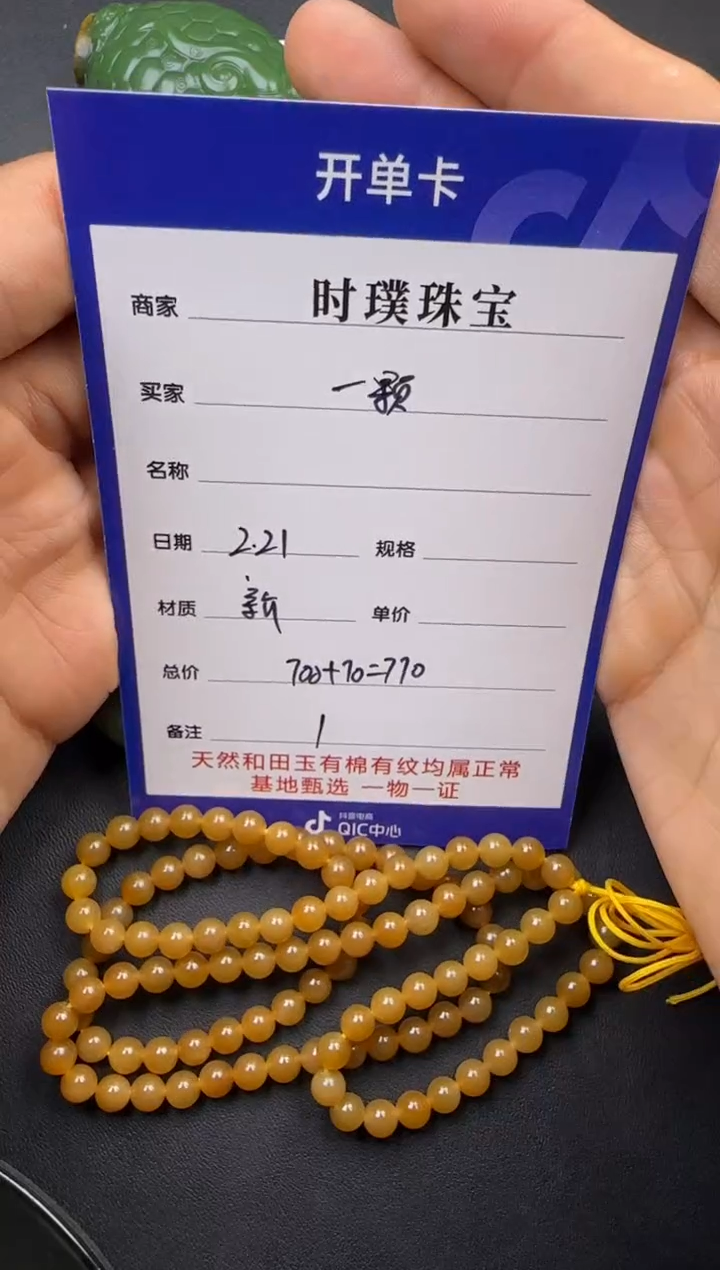 开单卡
商家 时璞珠宝
买家 一颗
名称
日期 2.21 规格
材质 新 单价
总价 700+70=770
备注 1
天然和田玉有棉有纹均属正常
基地甄选 一物一证
抖音电商
QIC中心